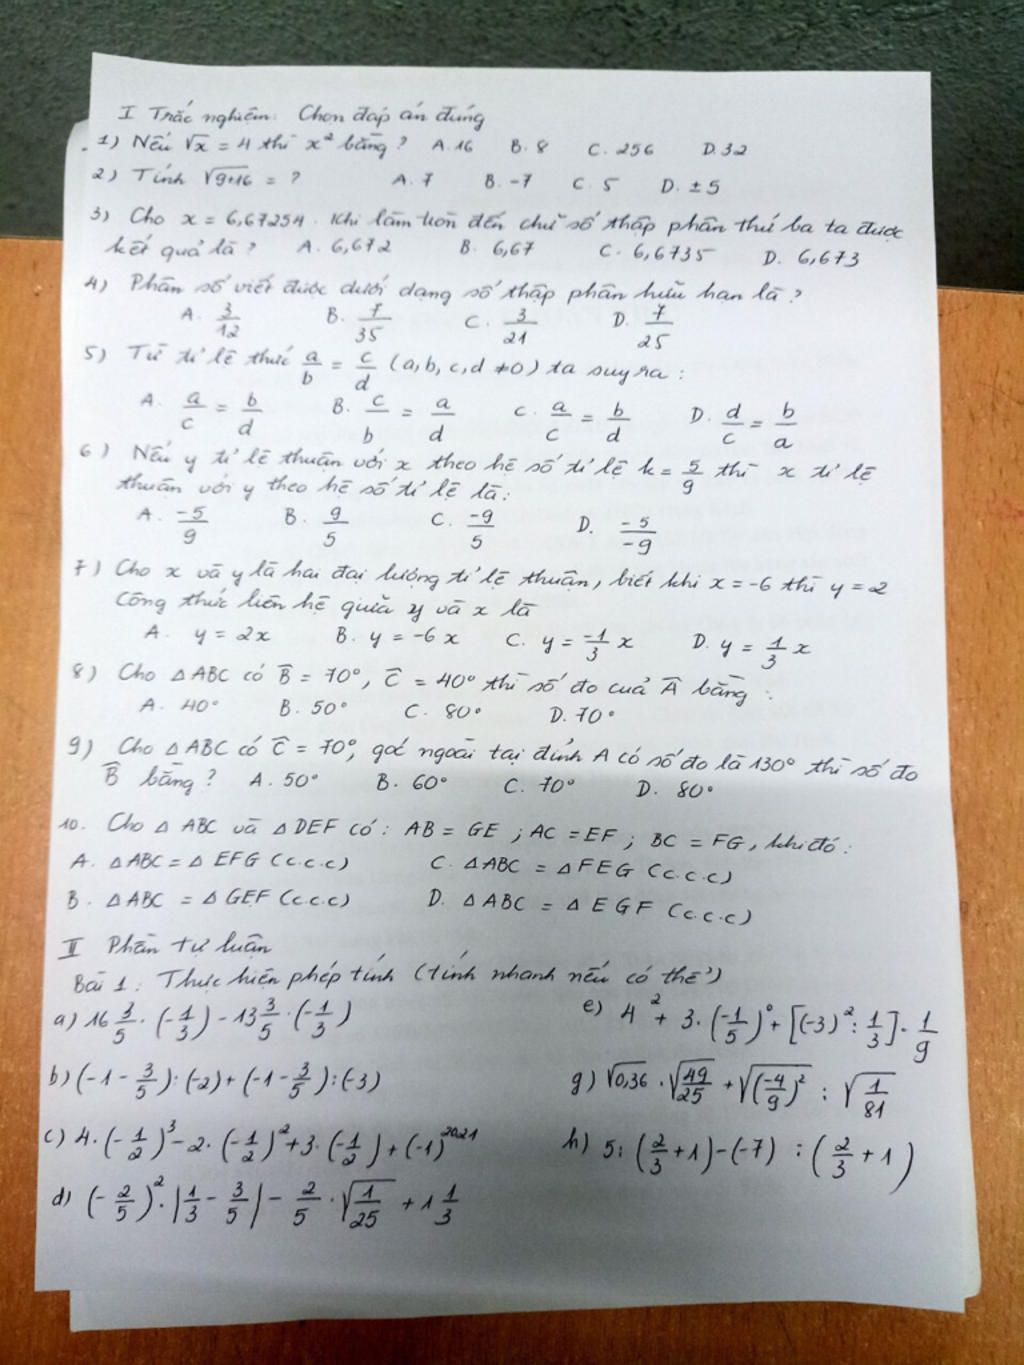 I Trắc nghiệm: Chọn đáp án đúng
1) Nếu √x = 4 thì x² bằng? A. 16 B. 8 C. 256 D. 32
2) Tính √9+16 = ? A. 7 B. -7 C. 5 D. ±5
3) Cho x = 6,67254. Khi làm tròn đến chữ số thập phân thứ ba ta được
kết quả là? A. 6,672 B. 6,67 C. 6,6735 D. 6,673
4) Phân số viết được dưới dạng số thập phân hữu hạn là?
A. 3/12 B. 7/35 C. 3/21 D. 7/25
5) Từ tỉ lệ thức a/b = c/d (a, b, c, d ≠ 0) ta suy ra:
A. a/c = b/d B. c/b = a/d C. a/c = b/d D. d/c = b/a
6) Nếu y tỉ lệ thuận với x theo hệ số tỉ lệ k = 5/9 thì x tỉ lệ
thuận với y theo hệ số tỉ lệ là:
A. -5/9 B. 9/5 C. -9/5 D. -5/-9
7) Cho x và y là hai đại lượng tỉ lệ thuận, biết khi x = -6 thì y = 2
Công thức liên hệ giữa y và x là
A. y = 2x B. y = -6x C. y = -1/3 x D. y = 1/3 x
8) Cho △ABC có B̂ = 70°, Ĉ = 40° thì số đo của Â bằng:
A. 40° B. 50° C. 80° D. 70°
9) Cho △ABC có Ĉ = 70°, góc ngoài tại đỉnh A có số đo là 130° thì số đo
B̂ bằng? A. 50° B. 60° C. 70° D. 80°
10. Cho △ ABC và △ DEF có: AB = GE ; AC = EF ; BC = FG, khi đó:
A. △ABC = △ EFG (c.c.c) C. △ABC = △FEG (c.c.c)
B. △ABC = △GEF (c.c.c) D. △ABC = △EGF (c.c.c)
II Phần tự luận
Bài 1: Thực hiện phép tính (tính nhanh nếu có thể)
a) 16 3/5 · (-1/3) - 13 3/5 · (-1/3) e) 4² + 3 · (-1/5)⁰ + [(-3)² : 1/3] · 1/9
b) (-1 - 3/5) : (-2) + (-1 - 3/5) : (-3) g) √0,36 · √49/25 + √(-4/9)² : √1/81
c) 4 · (-1/2)³ - 2 · (-1/2)² + 3 · (-1/2) + (-1)²⁰²¹ h) 5 : (2/3 + 1) - (-7) : (2/3 + 1)
d) (-2/5)² · |1/3 - 3/5| - 2/5 · √1/25 + 1 1/3